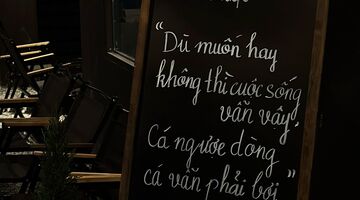 “Dù muốn hay
không thì cuộc sống
vẫn vậy,
Cá ngược dòng
cá vẫn phải bơi”